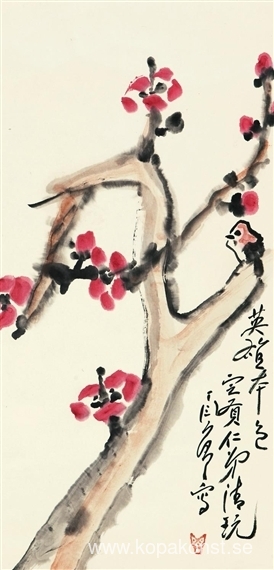 英雄本色
仁弟清玩
丁衍庸寫
www.kopakonst.se